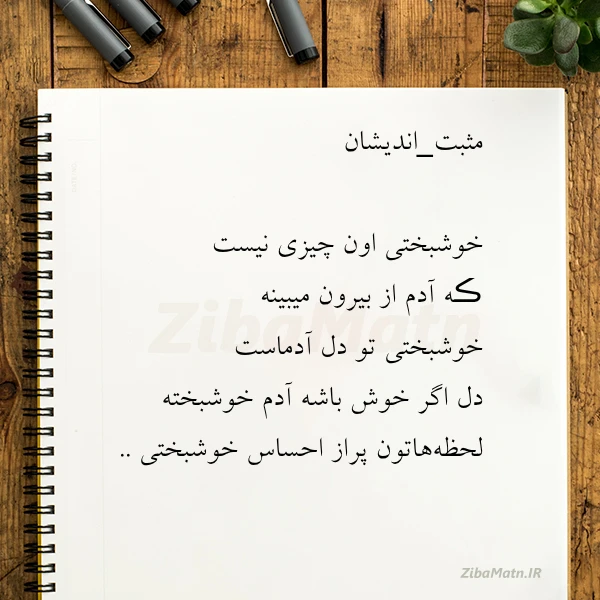 مثبت_اندیشان
خوشبختی اون چیزی نیست
که آدم از بیرون میبینه
خوشبختی تو دل آدماست
دل اگر خوش باشه آدم خوشبخته
لحظه‌هاتون پراز احساس خوشبختی ..
ZibaMatn
ZibaMatn.IR